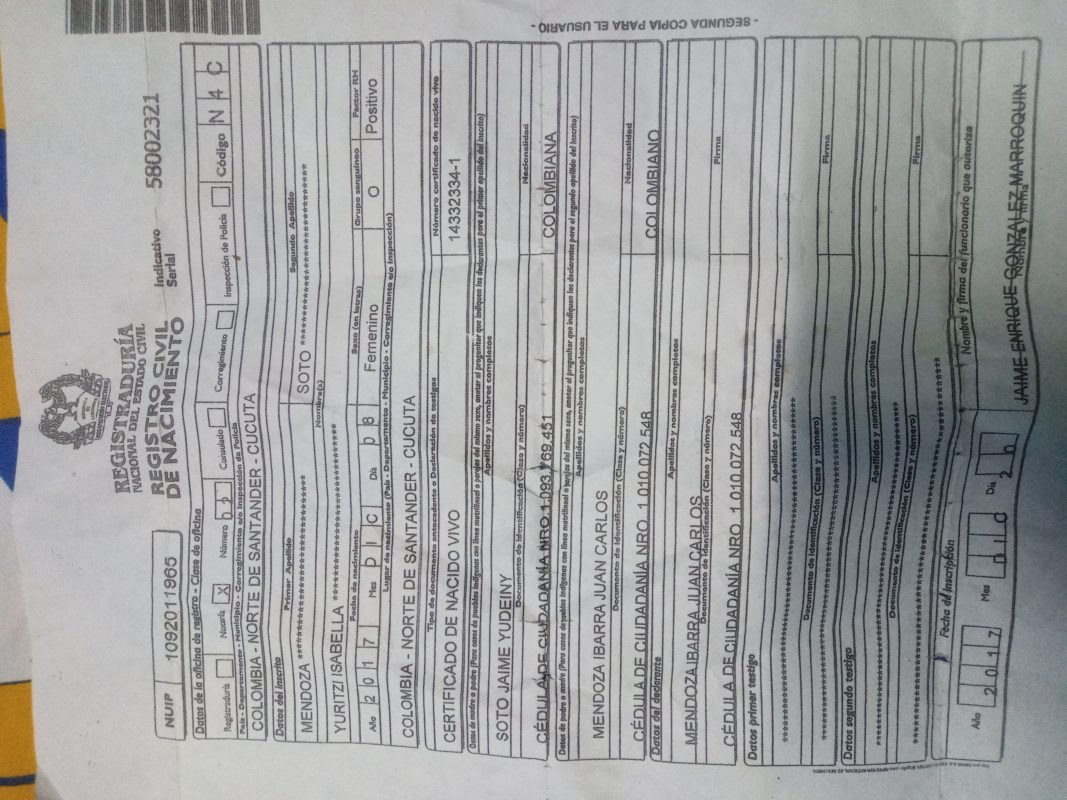 REGISTRADURÍA
NACIONAL DEL ESTADO CIVIL
REGISTRO CIVIL
DE NACIMIENTO
NUIP 1092011965
Indicativo Serial 58002321
Datos de la oficina de registro - Clase de oficina
Registraduría Notaría X Número 02 Consulado Corregimiento Inspección de Policía Código N 4 C
País - Departamento - Municipio - Corregimiento e/o Inspección de Policía
COLOMBIA - NORTE DE SANTANDER - CUCUTA
Datos del inscrito
Primer Apellido Segundo Apellido
MENDOZA ******************** SOTO ********************
Nombre(s)
YURITZI ISABELLA ********************
Fecha de nacimiento Sexo (en letras) Grupo sanguíneo Factor RH
Año 2 0 1 7 Mes D I C Día 0 8 Femenino O Positivo
Lugar de nacimiento (País - Departamento - Municipio - Corregimiento e/o Inspección)
COLOMBIA - NORTE DE SANTANDER - CUCUTA
Tipo de documento antecedente o Declaración de testigos Número certificado de nacido vivo
CERTIFICADO DE NACIDO VIVO 14332334-1
Datos de madre o padre (Para casos de pueblos indígenas con línea matrilineal o parejas del mismo sexo, anotar el progenitor que indiquen los declarantes para el primer apellido del inscrito)
Apellidos y nombres completos
SOTO JAIME YUDEINY
Documento de identificación (Clase y número) Nacionalidad
CÉDULA DE CIUDADANÍA NRO 1.093.769.451 COLOMBIANA
Datos de padre o madre (Para casos de pueblos indígenas con línea matrilineal o parejas del mismo sexo, anotar el progenitor que indiquen los declarantes para el segundo apellido del inscrito)
Apellidos y nombres completos
MENDOZA IBARRA JUAN CARLOS
Documento de identificación (Clase y número) Nacionalidad
CÉDULA DE CIUDADANÍA NRO 1.010.072.548 COLOMBIANO
Datos del declarante
Apellidos y nombres completos
MENDOZA IBARRA JUAN CARLOS
Documento de identificación (Clase y número) Firma
CÉDULA DE CIUDADANÍA NRO 1.010.072.548
Datos primer testigo
Apellidos y nombres completos
********************
Documento de identificación (Clase y número) Firma
********************
Datos segundo testigo
Apellidos y nombres completos
********************
Documento de identificación (Clase y número) Firma
********************
Fecha de inscripción Nombre y firma del funcionario que autoriza
Año 2 0 1 7 Mes D I C Día 2 0
JAIME ENRIQUE GONZALEZ MARROQUIN
Nombre y firma
- SEGUNDA COPIA PARA EL USUARIO -